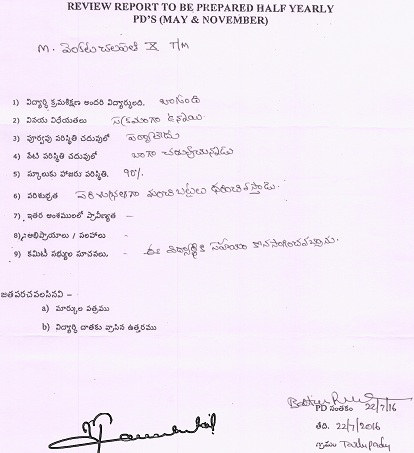 REVIEW REPORT TO BE PREPARED HALF YEARLY
PD'S (MAY & NOVEMBER)
M. వెంకటాచలపతి X T/M
1) విద్యార్థి క్రమశిక్షణ అందరి విద్యార్థులది. బాగుంది
2) వినయ విధేయతలు సక్రమంగా ఉన్నాయి
3) పూర్వపు పరిస్థితి చదువులో
4) నేటి పరిస్థితి చదువులో బాగా చదువుచున్నాడు
5) స్కూలుకు హాజరు పరిస్థితి. 90%
6) పరిశుభ్రత పరిశుభ్రంగా మంచి బట్టలు ధరించి వస్తాడు.
7) ఇతర అంశములలో ప్రావీణ్యత –
8) అభిప్రాయాలు / సలహాలు –
9) కమిటీ సభ్యుల సూచనలు. - ఈ విద్యార్థికి సహాయం కొనసాగించవచ్చును.
జతపరచవలసినవి –
a) మార్కుల పత్రము
b) విద్యార్థి దాతకు వ్రాసిన ఉత్తరము
PD సంతకం 22/7/16
తేది. 22/7/2016
గ్రామం